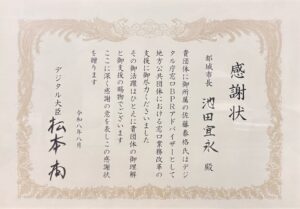 感謝状
都城市長 池田宜永 殿
貴団体に御所属の佐藤泰格氏はデジ
タル庁窓口BPRアドバイザーとして
地方公共団体における窓口業務改革の
支援に御尽力くださいました
その御活躍はひとえに貴団体の御理解
と御支援の賜物でございます
ここに深く感謝の意を表しこの感謝状
を贈ります
令和八年八月
デジタル大臣 松本尚